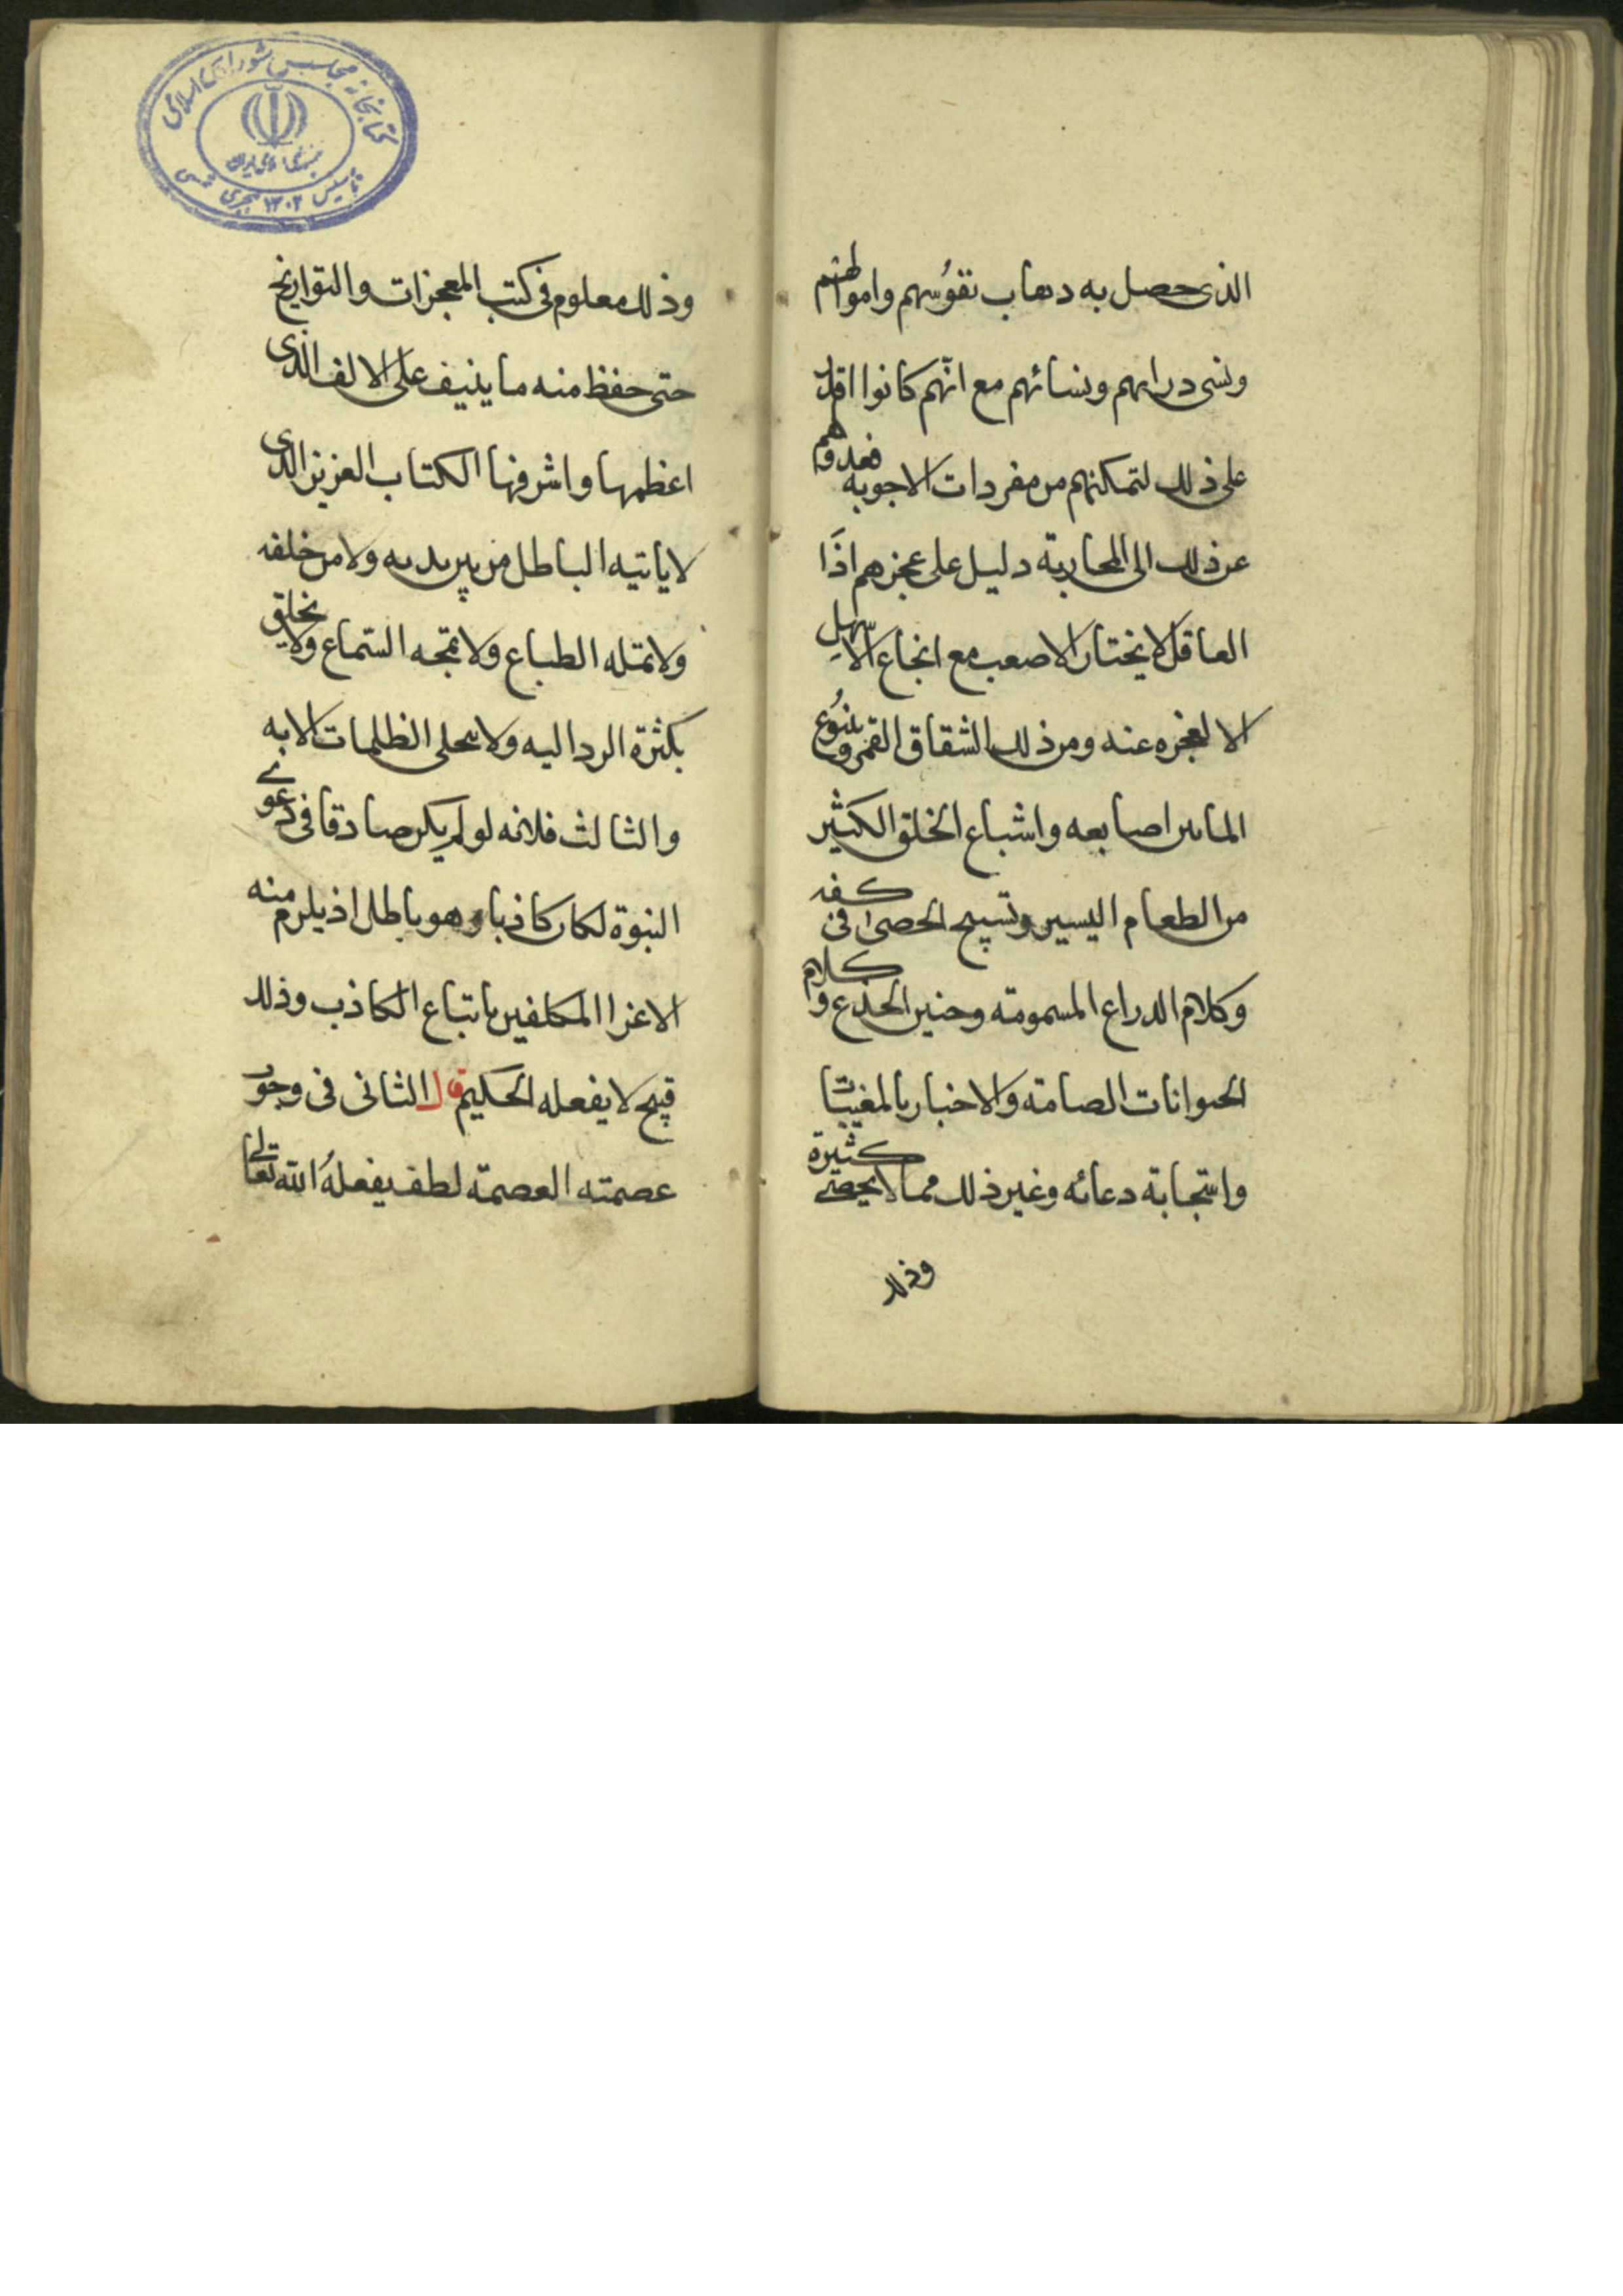 الذى حصل به دهاب نفوسهم واموالهم
وسى دراريهم ونسائهم مع انهم كانوا اقدر
على ذلك لتمكنهم من مفردات الاجوبه فعدولهم
عن ذلك الى المحاربة دليل على عجزهم اذا
العاقل لا يختار الاصعب مع انجاع الاسهل
الا لعجزه عنه ومن ذلك انشقاق القمر وينوع
الما من اصابعه واشباع الخلق الكثير
من الطعام اليسير وتسبيح الحصى فى كفه
وكلام الدراع المسمومة وحنين الجذع وكلام
الحيوانات الصامته والاخبار بالمغيبات
واستجابة دعائه وغير ذلك مما لا يحصى كثيرة
وذلك
وذلك معلوم فى كتب المعجزات والتواريخ
حتى حفظ منه ما ينيف على الالف الذى
اعظمها واشرفها الكتاب العزيز الذى
لا ياتيه الباطل من بين يديه ولا من خلفه
ولا تمله الطباع ولا تمجه السماع ولا يخلق
بكثرة الرد اليه ولا تنجلى الظلمات الا به
والثالث فلانه لو لم يكن صادقا فى دعوى
النبوة لكان كاذبا وهو باطل اذ يلزم منه
الاغرا المكلفين باتباع الكاذب وذلك
قبيح لا يفعله الحكيم قال الثانى فى وجوب
عصمته العصمة لطف يفعله الله تعالى
كتابخانه مجلس شوراى اسلامى
جمهورى اسلامى ايران
تاسيس ١٣٠٢ هجرى شمسى